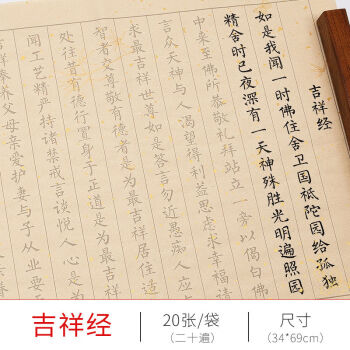 吉祥经
如是我闻一时佛住舍卫国祇陀园给孤独
精舍时已夜深有一天神殊胜光明遍照园
中来至佛所恭敬礼拜站立一旁以偈白佛
言众天神与人渴望得利益思虑求幸福请
求最吉祥世尊如是答言勿近愚痴人应与
智者交尊敬有德者是为最吉祥居住适
处往昔有德行置身于正道是为最吉祥
闻工艺精严持诸禁戒言谈悦人心是为
祥奉养父母亲爱护妻与子从业要
吉祥经
20张/袋
(二十遍)
尺寸
(34*69cm)